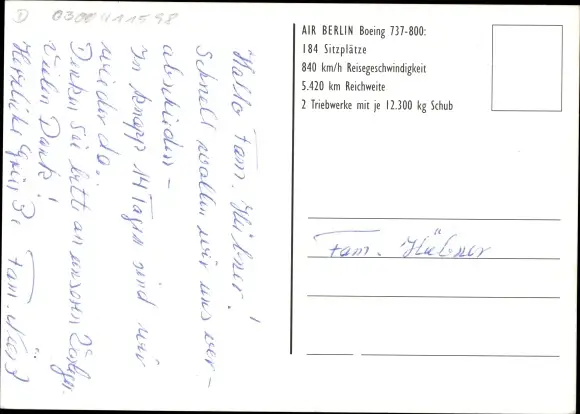 Ⓓ 0300411598
Hallo Fam. Hübner!
Schnell wollen wir uns ver-
abschieden -
In knapp 14 Tagen sind wir
wieder da.
Denken Sie bitte an unseren
Vielen Dank!
Herzliche Grüße Fam.
AIR BERLIN Boeing 737-800:
184 Sitzplätze
840 km/h Reisegeschwindigkeit
5.420 km Reichweite
2 Triebwerke mit je 12.300 kg Schub
Fam. Hübner